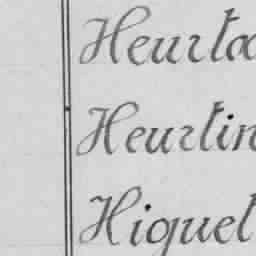 Heurta
Heurtin
Hiquet